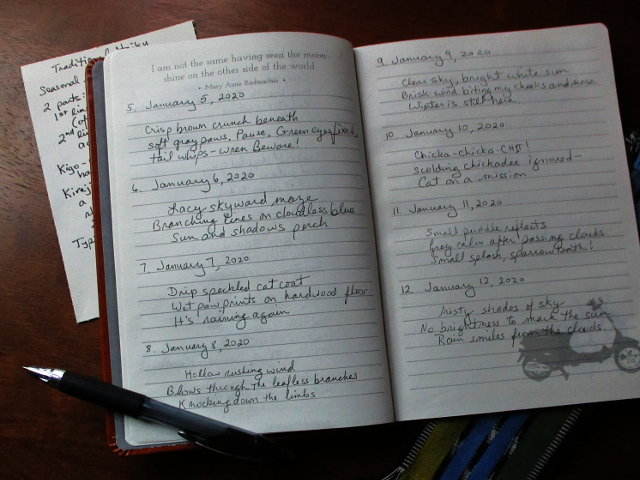 Traditional Haiku
Seasonal
2 parts:
1st lin
(of
2nd lin
a
Kigo -
ha
Kirej
a
Typ
I am not the same having seen the moon
shine on the other side of the world
• Mary Anne Radmacher •
5. January 5, 2020
Crisp brown crunch beneath
soft gray paws, Pause, Green eyes fixed,
tail whips - wren Beware!
6. January 6, 2020
Lacy skyward maze
Branching lines on cloudless blue
Sun and shadows perch
7. January 7, 2020
Drip speckled cat coat
Wet paw prints on hardwood floor
It's raining again
8. January 8, 2020
Hollow rushing wind
Blows through the leafless branches
Knocking down the limbs
9. January 9, 2020
Clear sky, bright white sun
Brisk wind biting my cheeks and nose
Winter is still here
10. January 10, 2020
Chicka-chicka CHJ!
scolding chickadee ignored-
Cat on a mission
11. January 11, 2020
Small puddle reflects
grey calm after passing clouds
Small splash, sparrow bath!
12. January 12, 2020
Misty shades of sky
No brightness to mark the sun
Rain smiles from the clouds